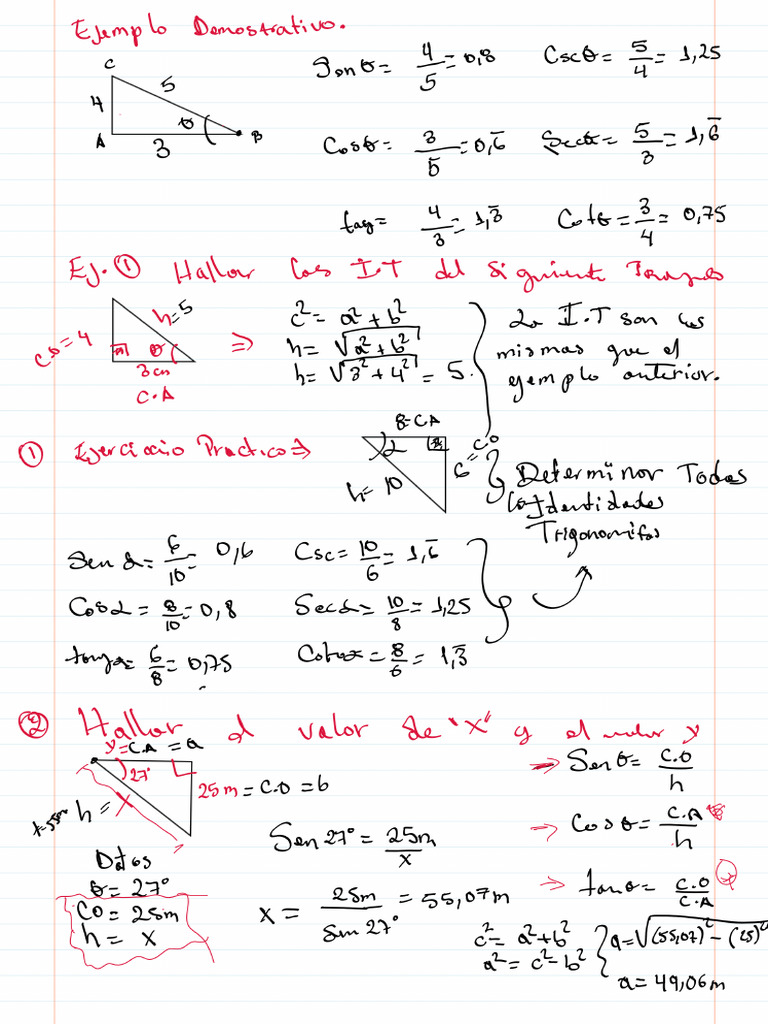 Ejemplo Demostrativo.
C
4
5
θ
A
3
B
Senθ = 4/5 = 0,8
Cscθ = 5/4 = 1,25
Cosθ = 3/5 = 0,6̅
Secθ = 5/3 = 1,6̅
tag = 4/3 = 1,3̅
Cotθ = 3/4 = 0,75
Ej. ① Hallar Las I.T del Siguiente Triangulo
co = 4
h = 5
θ
3 cm
C.A
⇒
c² = a² + b²
h = √a² + b²
h = √3² + 4² = 5.
La I.T son las
mismas que el
ejemplo anterior.
① Ejercicio Practico ⇒
8-CA
α
6 = CO
h = 10
Determinar Todas
las Identidades
Sen α = 6/10 = 0,6
Csc = 10/6 = 1,6̅
Cos α = 8/10 = 0,8
Sec α = 10/8 = 1,25
tang α = 6/8 = 0,75
Cotα = 8/6 = 1,3̅
② Hallar el valor de "X" y el valor y
y = C.A = a
27°
25m = C.O = b
h = x
Datos
θ = 27°
CO = 25m
h = x
Sen 27° = 25m/x
x = 25m/Sen 27° = 55,07m
→ Senθ = C.O/h
→ Cosθ = C.A/h
→ tanθ = C.O/C.A
c² = a² + b²
a² = c² - b²
a = √(55,07)² - (25)²
a = 49,06 m